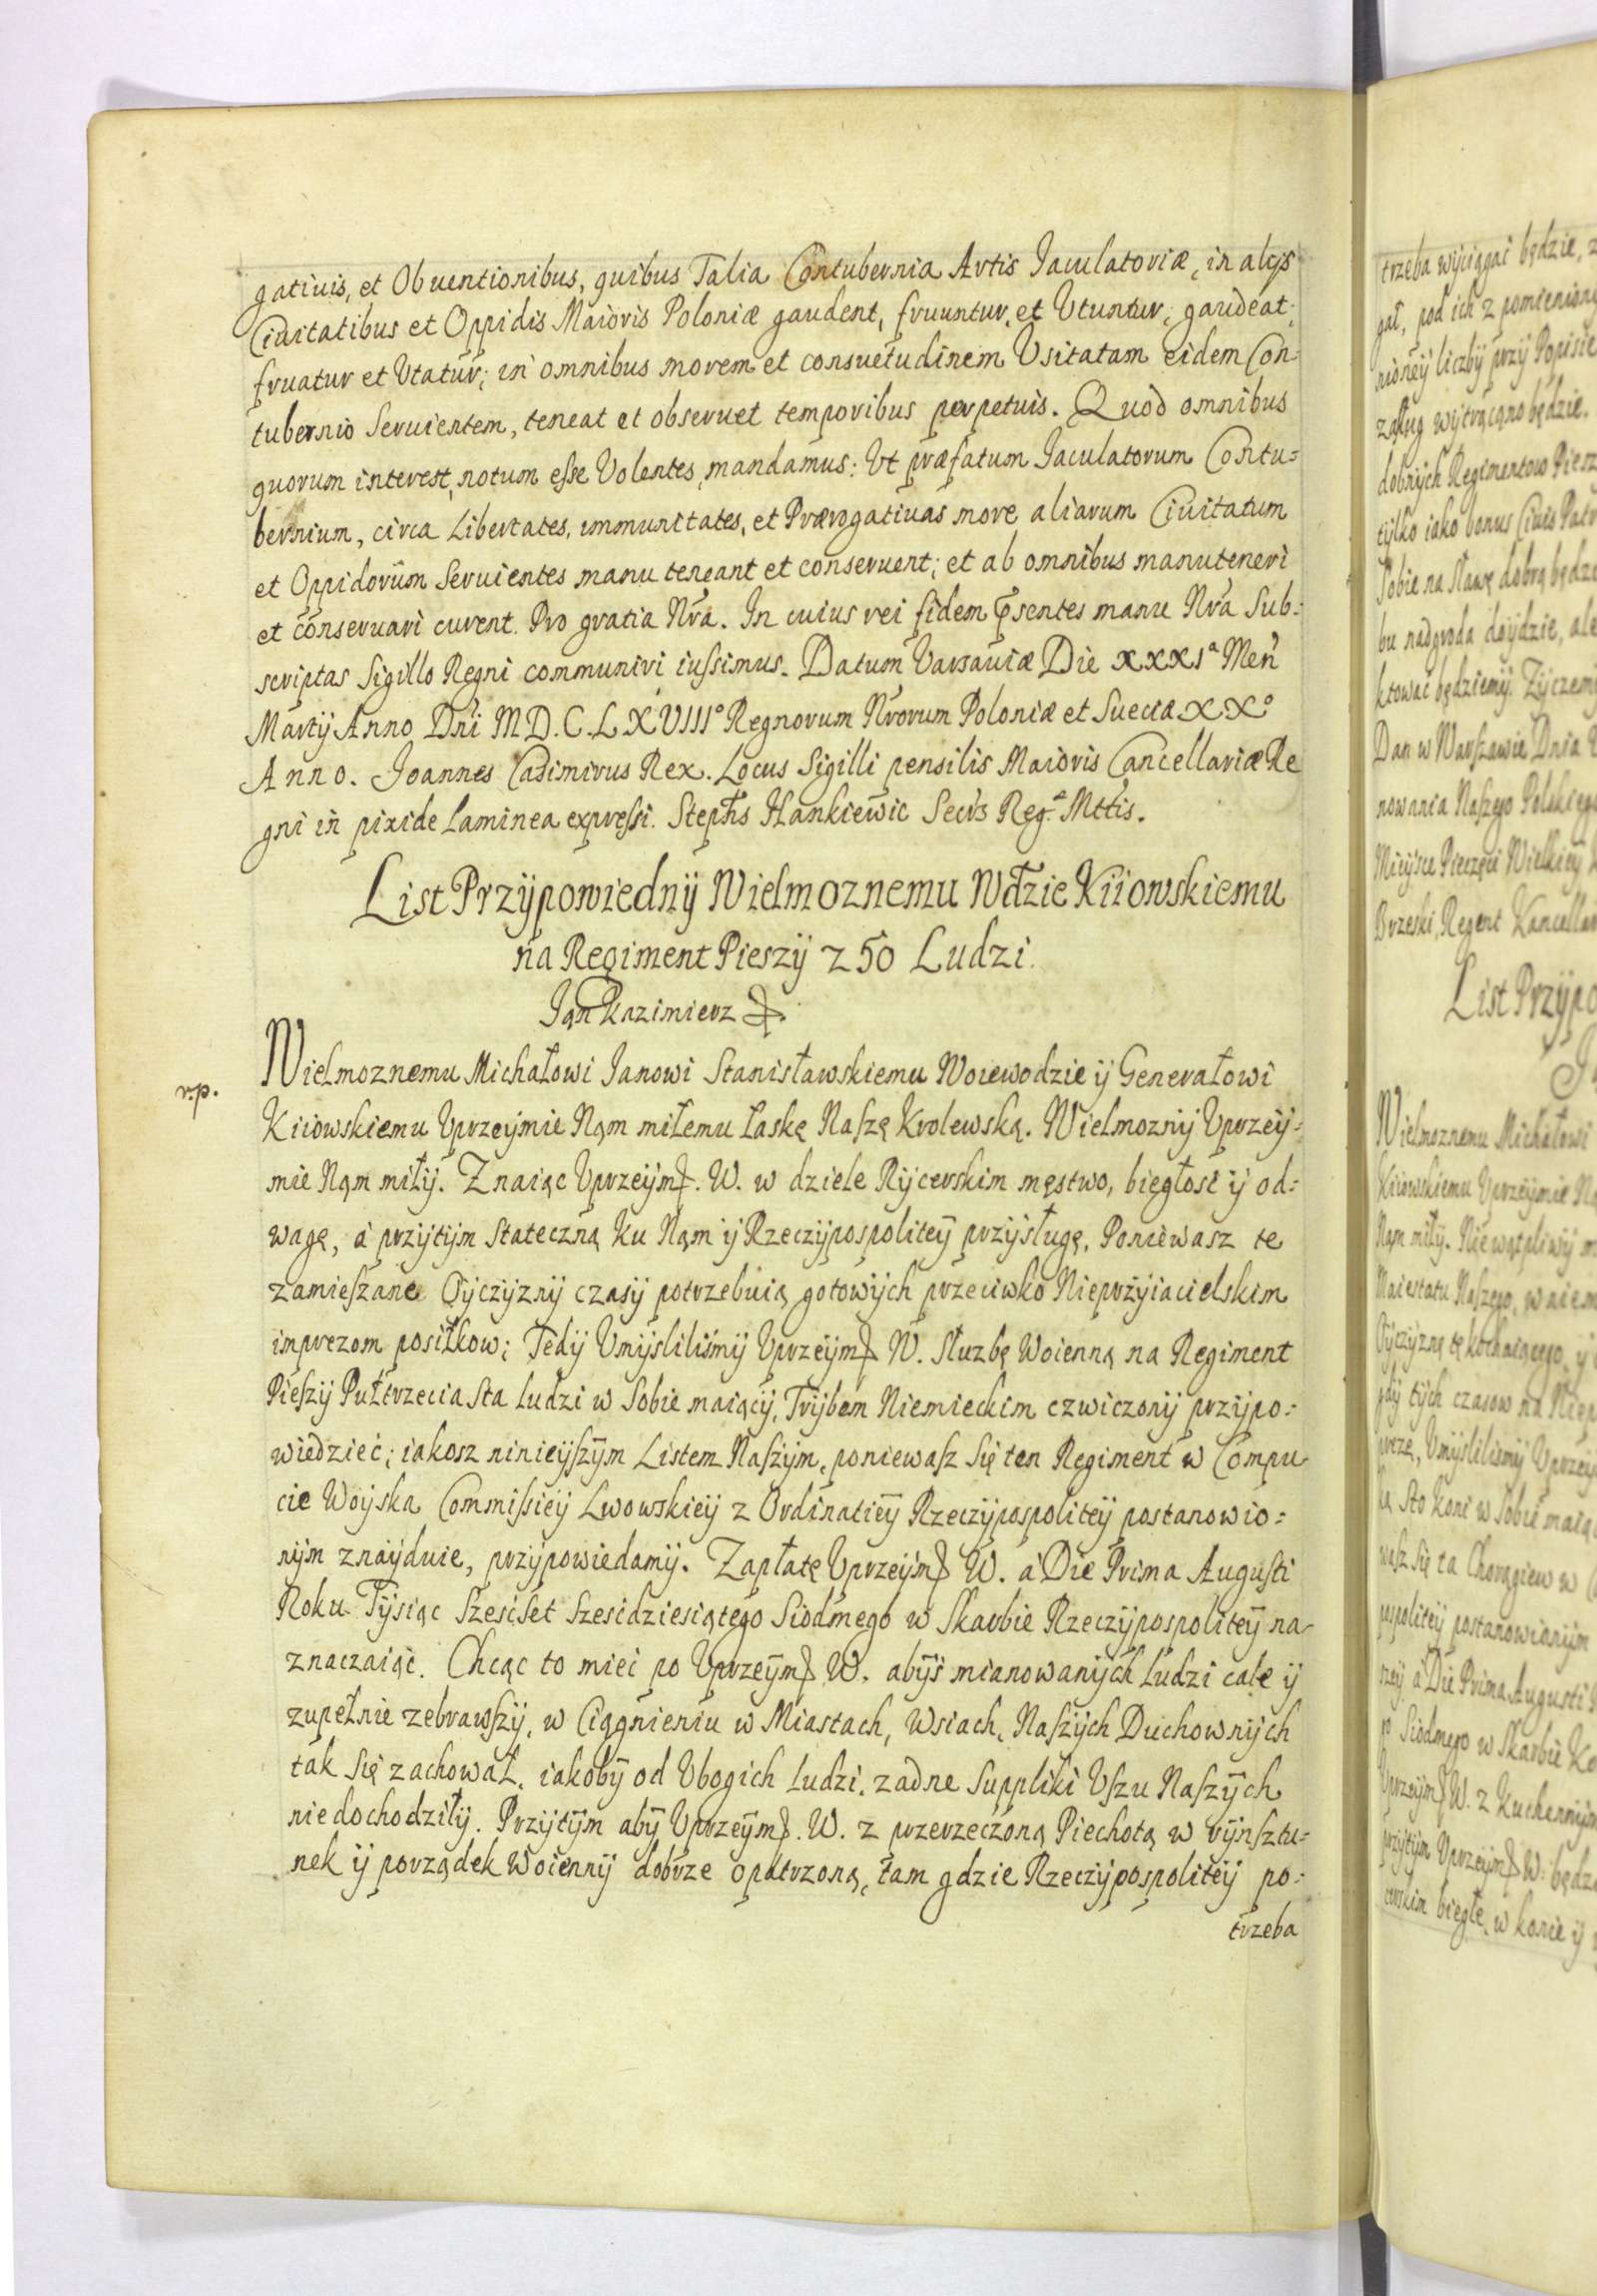 gatiuis, et Obuentionibus, quibus Talia Contubernia Artis Iaculatoriæ, in alijs
Ciuitatibus et Oppidis Maioris Poloniæ gaudent, fruuntur, et Vtuntur; gaudeat,
fruatur et Vtatur; in omnibus morem et consuetudinem Vsitatam eidem Con=
tubernio Seruientem, teneat et obseruet temporibus perpetuis. Quod omnibus
quorum interest, notum esse Volentes, mandamus: Vt præfatum Iaculatorum Contu=
bernium, circa Libertates, immunitates, et Prærogatiuas more aliarum Ciuitatum
et Oppidorum Seruientes manu teneant et conseruent; et ab omnibus manuteneri
et conseruari curent. Pro gratia Nrã. In cuius rei fidem p̃sentes manu Nrã Sub=
scriptas Sigillo Regni communiri iussimus. Datum Varsauiæ Die XXXIª Meñ
Martij Anno Dñi M.D.C.LXVIIIº Regnorum Nrorum Poloniæ et Sueciæ XXº
Anno. Joannes Casimirus Rex. Locus Sigilli pensilis Maioris Cancellariæ Re
gni in pixide Laminea expressi. Stephs Hankiewic Secrs Reg. Mttis.
List Przÿpowiednÿ Wielmoznemu Wdzie Kiiowskiemu
na Regiment Pieszÿ 250 Ludzi.
Ian Kazimierz
Wielmoznemu Michałowi Janowi Stanisławskiemu Woiewodzie ÿ Generałowi
Kiiowskiemu Vprzeÿmie Nąm miłemu Łaskę Naszę Krolewską. Wielmoznÿ Vprzeÿ=
mie Nąm miłÿ. Znaiąc Vprzeÿm. W. w dziele Rÿcerskim męstwo, biegłość ÿ od=
wagę, á przÿtÿm Stateczną ku Nąm ÿ Rzeczÿpospoliteÿ przÿsługę, Poniewasz te
zamieszane Oÿczÿznÿ czasÿ potrzebuią gotowÿch przeciwko Nieprzÿiacielskim
imprezom posiłkow; Tedÿ Vmÿsliliśmÿ Vprzeÿm W. Służbę Woienną na Regiment
Pieszÿ Pułtrzecia Sta ludzi w Sobie maiącÿ, Trÿbem Niemieckim czwiczonÿ przÿpo=
wiedzieć; iakosz ninieÿszÿm Listem Naszÿm, poniewasz Się ten Regiment w Compu
cie Woÿska Commissieÿ Lwowskieÿ z Ordinatieÿ Rzeczÿpospoliteÿ postanowio=
nÿm znaÿduie, przÿpowiedamÿ. Zapłatę Vprzeÿm W. á Die Prima Augusti
Roku Tÿsiąc Szescset Szescdziesiątego Siodmego w Skarbie Rzeczÿpospoliteÿ na
znaczaiąc. Chcąc to mieć po Vprzeÿm W. abÿś mianowanÿch Ludzi całe ÿ
zupełnie zebrawszÿ, w Ciągnieniu w Miastach, Wsiach, Naszÿch Duchownÿch
tak Się zachował, iakobÿ od Vbogich Ludzi, zadne Suppliki Vszu Naszÿch
nie dochodziłÿ. Przÿtÿm abÿ Vprzeÿm. W. z przerzeczoną Piechotą w rÿnsztu=
nek ÿ porządek Woiennÿ dobrze opatrzoną, tam gdzie Rzeczÿpospoliteÿ po=
trzeba
trzeba wÿciągać będzie,
gał, pod ich z pomienion
nioneÿ liczbÿ przÿ Popisie
zasług wÿtrącąno będzie.
dobnÿch Regimentow Piesz
tÿlko iako bonus Ciuis Patr
Sobie na Sławę dobrą będz
bu nadgroda doÿdzie, ale
ktować będziemÿ. Zÿczem
Dan w Warszawie Dnia
nowania Naszego Polskieg
Mieÿsce Pieczęci Wielkieÿ
Brzeski, Regent Kancellar
List Przÿpo
Wielmoznemu Michałowi
Kiiowskiemu Vprzeÿmie Ną
Nąm miłÿ. Niewątpliwÿ m
Maiestatu Naszego, w
Oÿczÿznę tę kochaiącego, ÿ
gdÿ tÿch czasow na Niep
Vmÿsliliśmÿ Vprzeÿ
Sto Koni w Sobie maiąc
wasz Się ta Chorągiew w
pospoliteÿ postanowionÿm
neÿ á Die Prima Augusti
Siodmego w Skarbie
Vprzeÿm W. z Kuchennÿm
przÿtÿm Vprzeÿm W. będz
cerskim biegłe, w konie ÿ